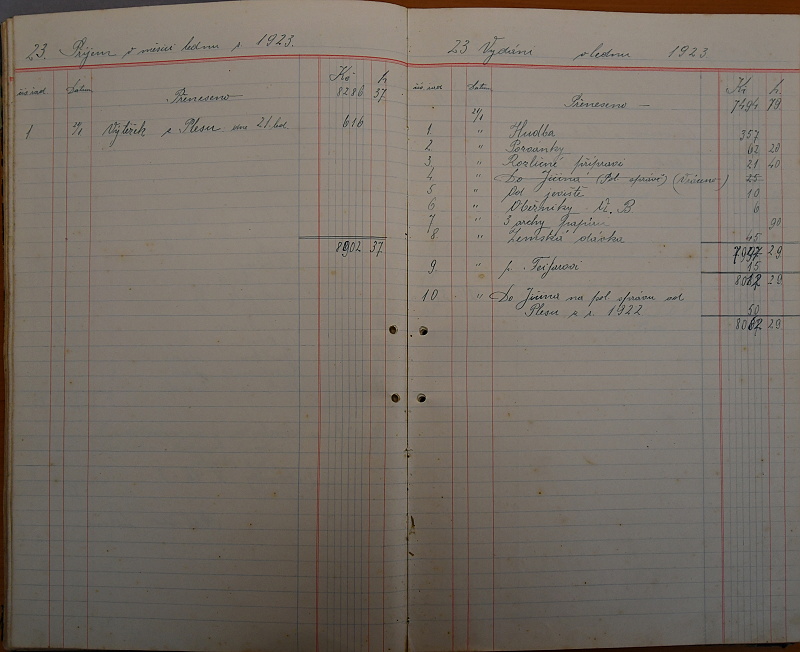 23. Příjem v měsíci lednu r 1923.
čís řad Datum Kč h
Přeneseno 8286 37
1 21/1 Výtěžek z Plesu dne 21. led. 616
8902 37
23 Vydání v lednu 1923
čís řad Datum Kč h.
Přeneseno — 7494 79
21/1
1 " Hudba 357
2 " Pozvánky 62 20
3 " Rozličné přípravi 21 40
4 " Do Jičína (Pol. správě) (Vráceno) 25
5 " Od jeviště 10
6 " Oběžníky 6
7 " 3 archy papíru 90
8 " Zemská dávka 45
7997 29
9 " p. Fejfarovi 15
8012 29
10 " Do Jičína na pol. správu od
Plesu z r. 1922 50
8062 29